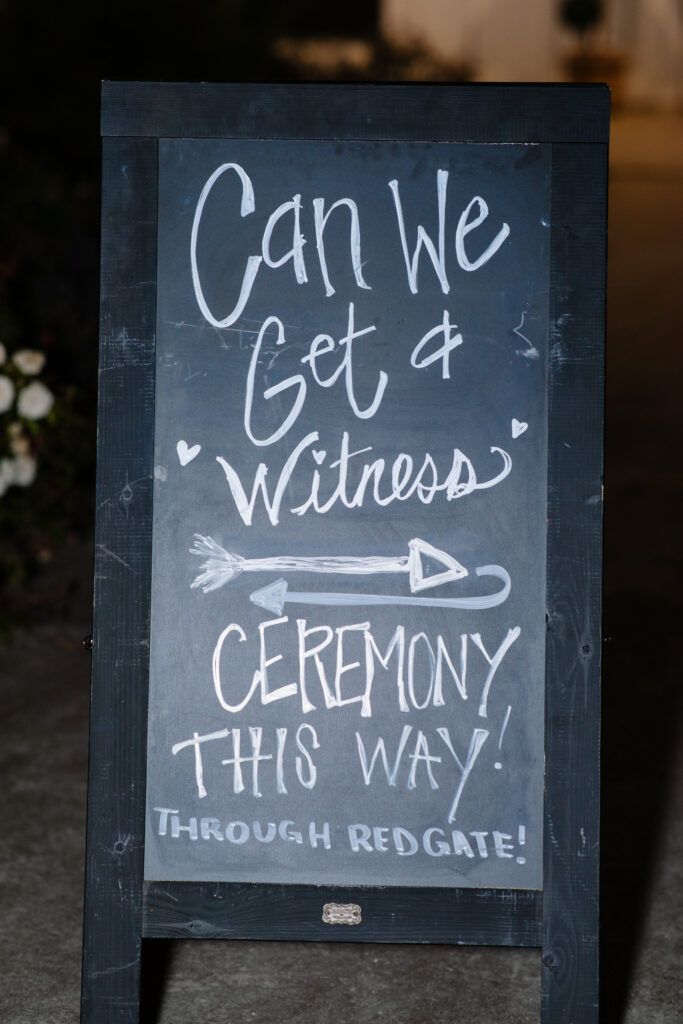 Can We
Get a
Witness
CEREMONY
THIS WAY!
THROUGH RED GATE!